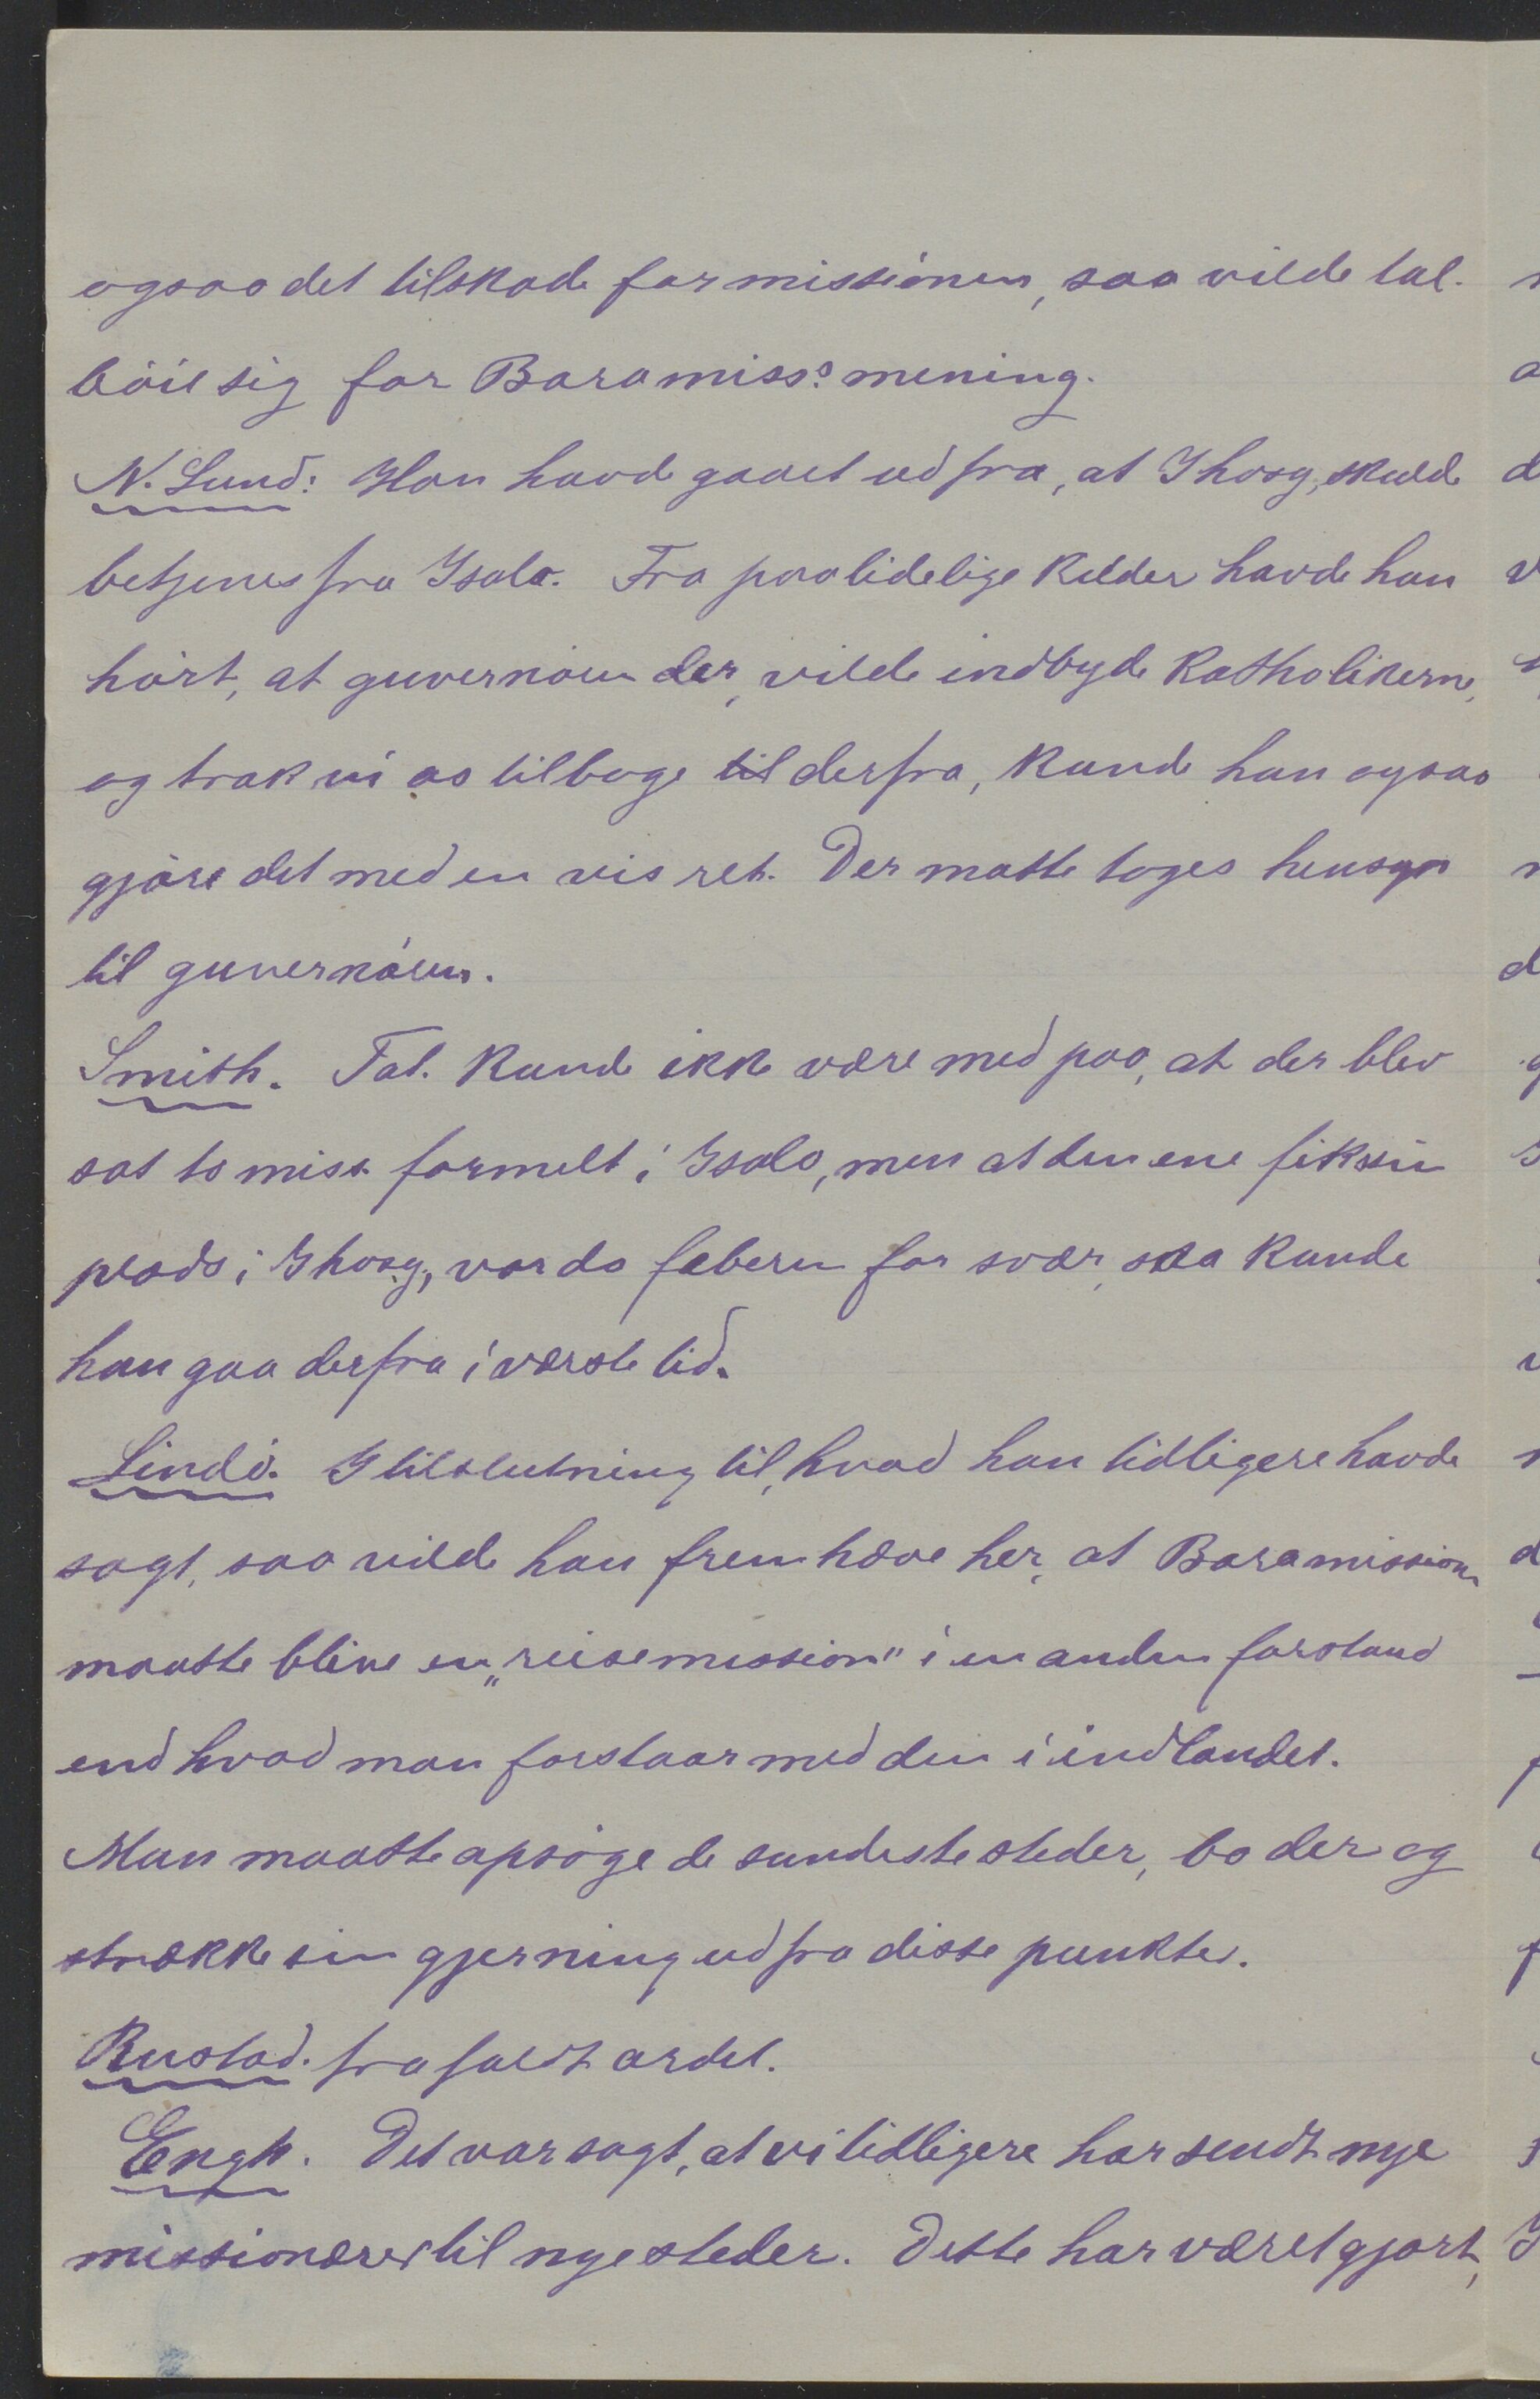 ogsaa det tilskade for missiónen, saa vilde tal.
bóie sig for Baramiss.s mening.
N. Lund: Han havde gaaet ud fra, at Ihosy, skulde
betjenes fra Isalo. Fra paalidelige kilder havde han
hórt, at guvernóren der, vilde indbyde katholikerne,
og trak vi os tilbage til derfra, kunde han ogsaa
gjóre det med en vis ret. Der matte tages hensyn
til guvernóren.
Smith. Tal. kunde ikke være med paa, at der blev
sat to miss. formelt i Isalo, men at den ene fik sin
plads i Ihosy, var da feberen for svær, saa kunde
han gaa derfra i værste tid.
Lindó. I tilslutning til, hvad han tidligere havde
sagt, saa vilde han fremhæve her, at Baramissionen
maatte blive en „reisemission" i en anden forstand
end hvad man forstaar med den i indlandet.
Man maatte opsóge de sundeste steder, bo der og
strække sin gjerning ud fra disse punkter.
Rustad. frafaldt ordet.
Engh. Det var sagt, at vi tidligere har sendt nye
missionærer til nye steder. Dette har været gjort,